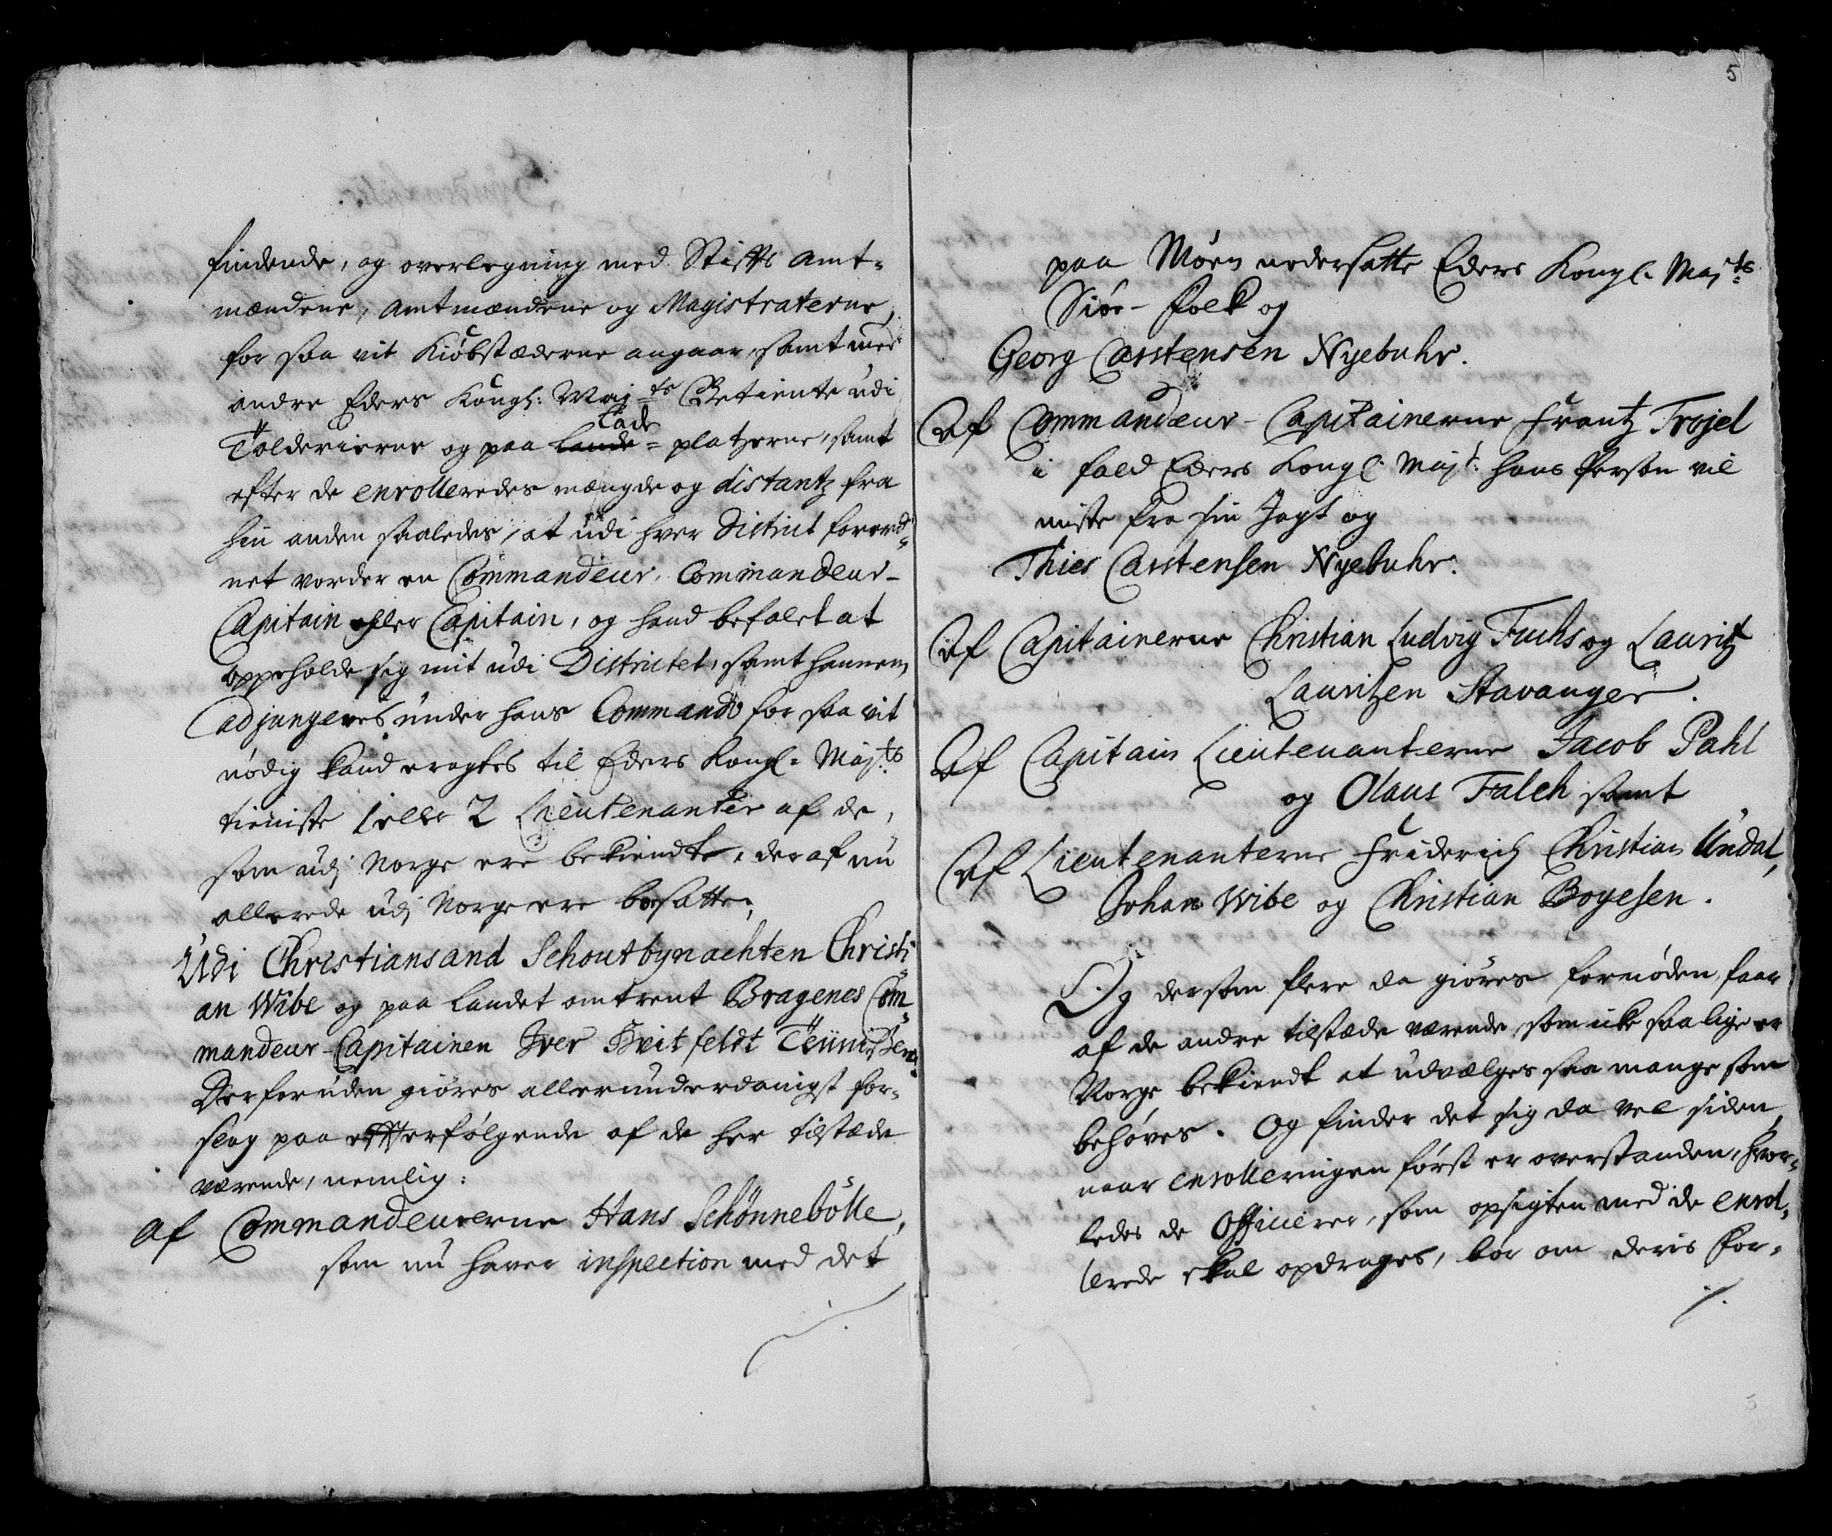 findende, og overlegning med Stiffts Amt-
mændene, Amtmændene og Magistraterne,
for saa vit Kiöbstæderne angaar, samt med
andre Eders Kongl: Maj:ts Betiente udi
Tolderierne og paa Lade-platzerne, samt
efter de enrolleredes mængde og distantz fra
hin anden saaledes, at udi hver District forord-
net vorder en Commandeur, Commandeur-
Capitain eller Capitain, og hand befalet at
oppeholde sig mit udi Districtet, samt hannem
adjungeres under hans Commando for saa vit
nödig kand eragtes til Eders Kongl. Maj:ts
tieniste 1 eller 2 Lieutenanter af de,
som udj Norge ere bekiendte, deraf nu
allerede udj Norge ere besatte,
Udi Christiansand Schoutbynachten Christi
an Wibe og paa Landet omtrent Bragenes Com-
mandeur-Capitainen Iver Hvitfeldt
Derforuden giöres allerunderdanigst for-
slag paa efterfölgende af de her tilstæde
værende, nemlig:
Af Commandeurerne Hans Schönnebölle,
som nu haver inspection med det
5
paa Møen nedersatte Eders Kongl. Maj:ts
Siöe-folk og
Georg Carstensen Nyebuhr.
Af Commandeur-Capitainerne Frantz Trojel
i fald Eders Kongl. Majt: hans Person vil
miste fra sin Jagt og
Thies Carstensen Nyebuhr.
Af Capitainerne Christian Ludvig Fuchs og Lauritz
Lauritzen Stavanger.
Af Capitain Lieutenanterne Jacob Pahl
og Olaus Falch samt
Af Lieutenanterne Friderich Christian Undal,
Johan Wibe og Christian Boyesen.
Og dersom flere da giöres fornöden, faar
af de andre tilstæde værende, som icke saa lige er
Norge bekiendt at udvælges saa mange som
behöves. Og finder det sig da vel siden,
naar enrolleringen först er overstanden, hvor-
ledes de Officerer, som opsigten med de enrol-
lerede skal opdrages, bör om deris for-